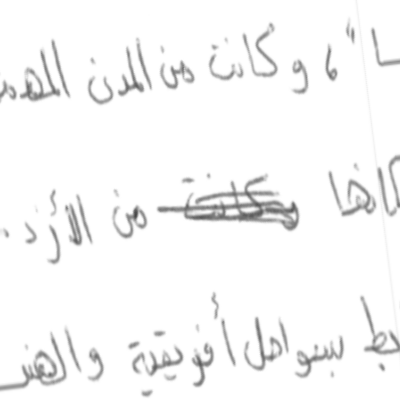 ـا"، وكانت من المدن المهمـ
ـكانها من الأزد.
ـبط بسواحل أفريقية والهنـ